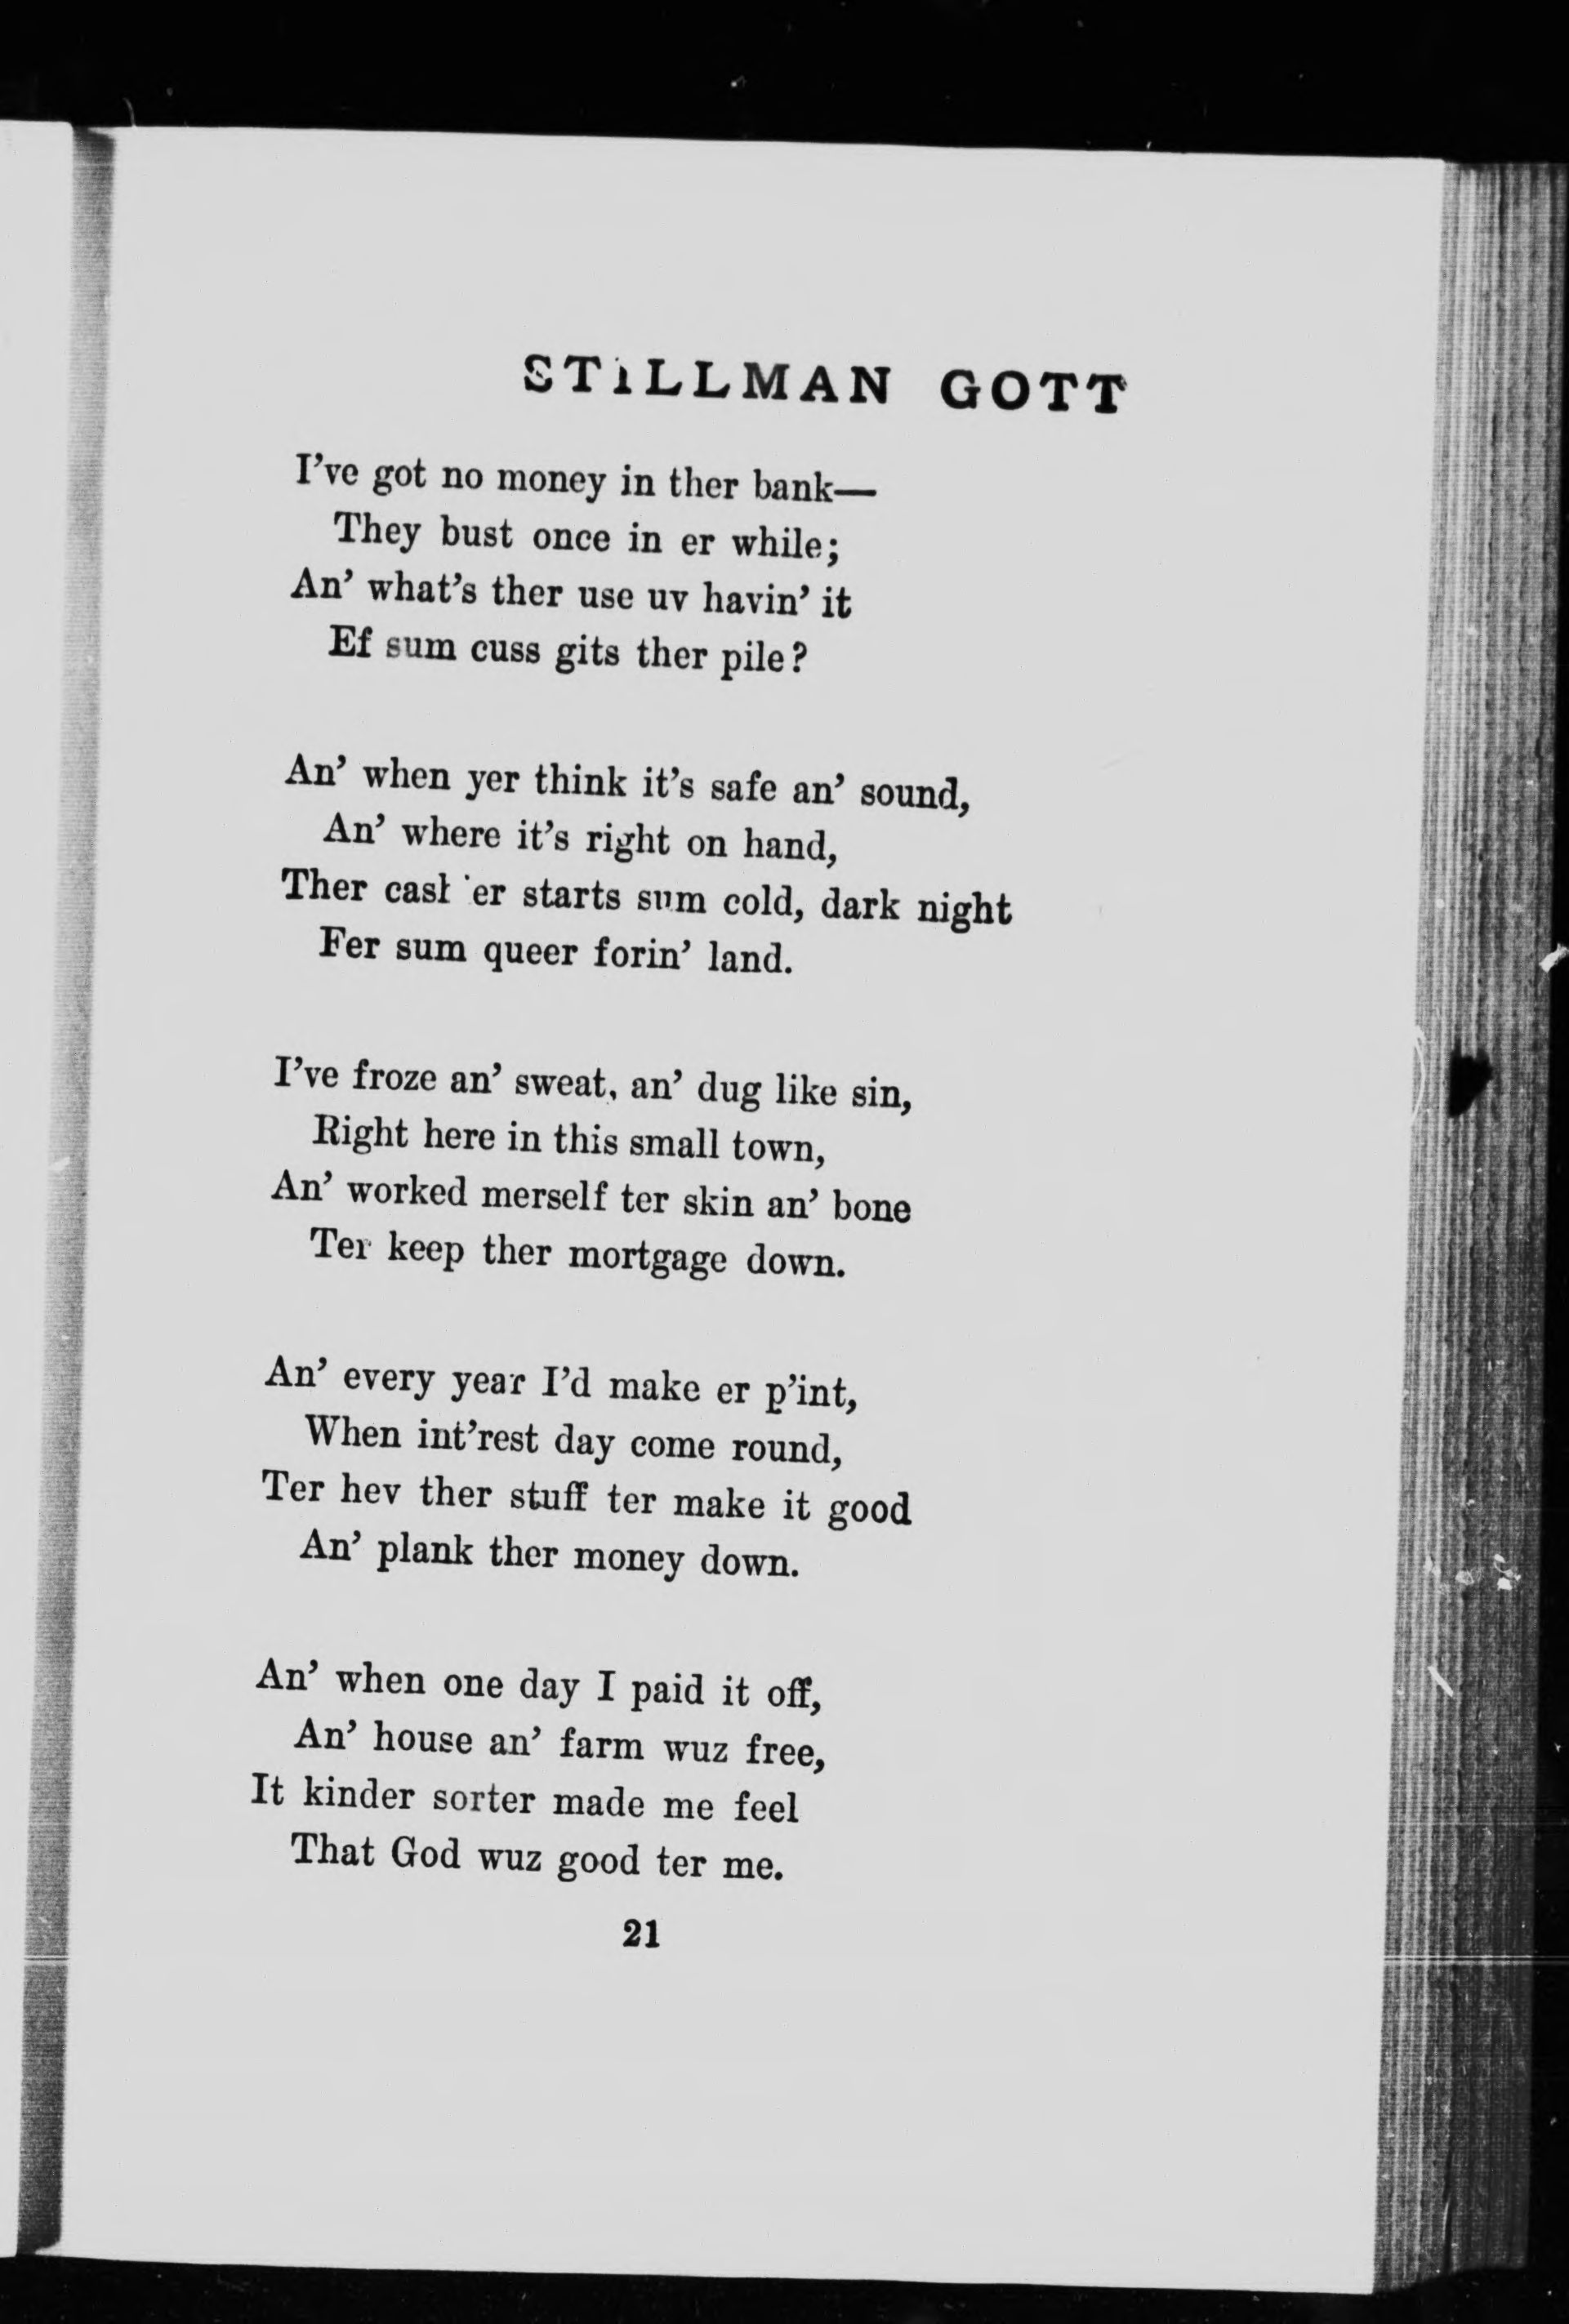 STILLMAN GOTT
I've got no money in ther bank—
They bust once in er while;
An' what's ther use uv havin' it
Ef sum cuss gits ther pile?
An' when yer think it's safe an' sound,
An' where it's right on hand,
Ther cashier starts sum cold, dark night
Fer sum queer forin' land.
I've froze an' sweat, an' dug like sin,
Right here in this small town,
An' worked merself ter skin an' bone
Ter keep ther mortgage down.
An' every year I'd make er p'int,
When int'rest day come round,
Ter hev ther stuff ter make it good
An' plank ther money down.
An' when one day I paid it off,
An' house an' farm wuz free,
It kinder sorter made me feel
That God wuz good ter me.
21